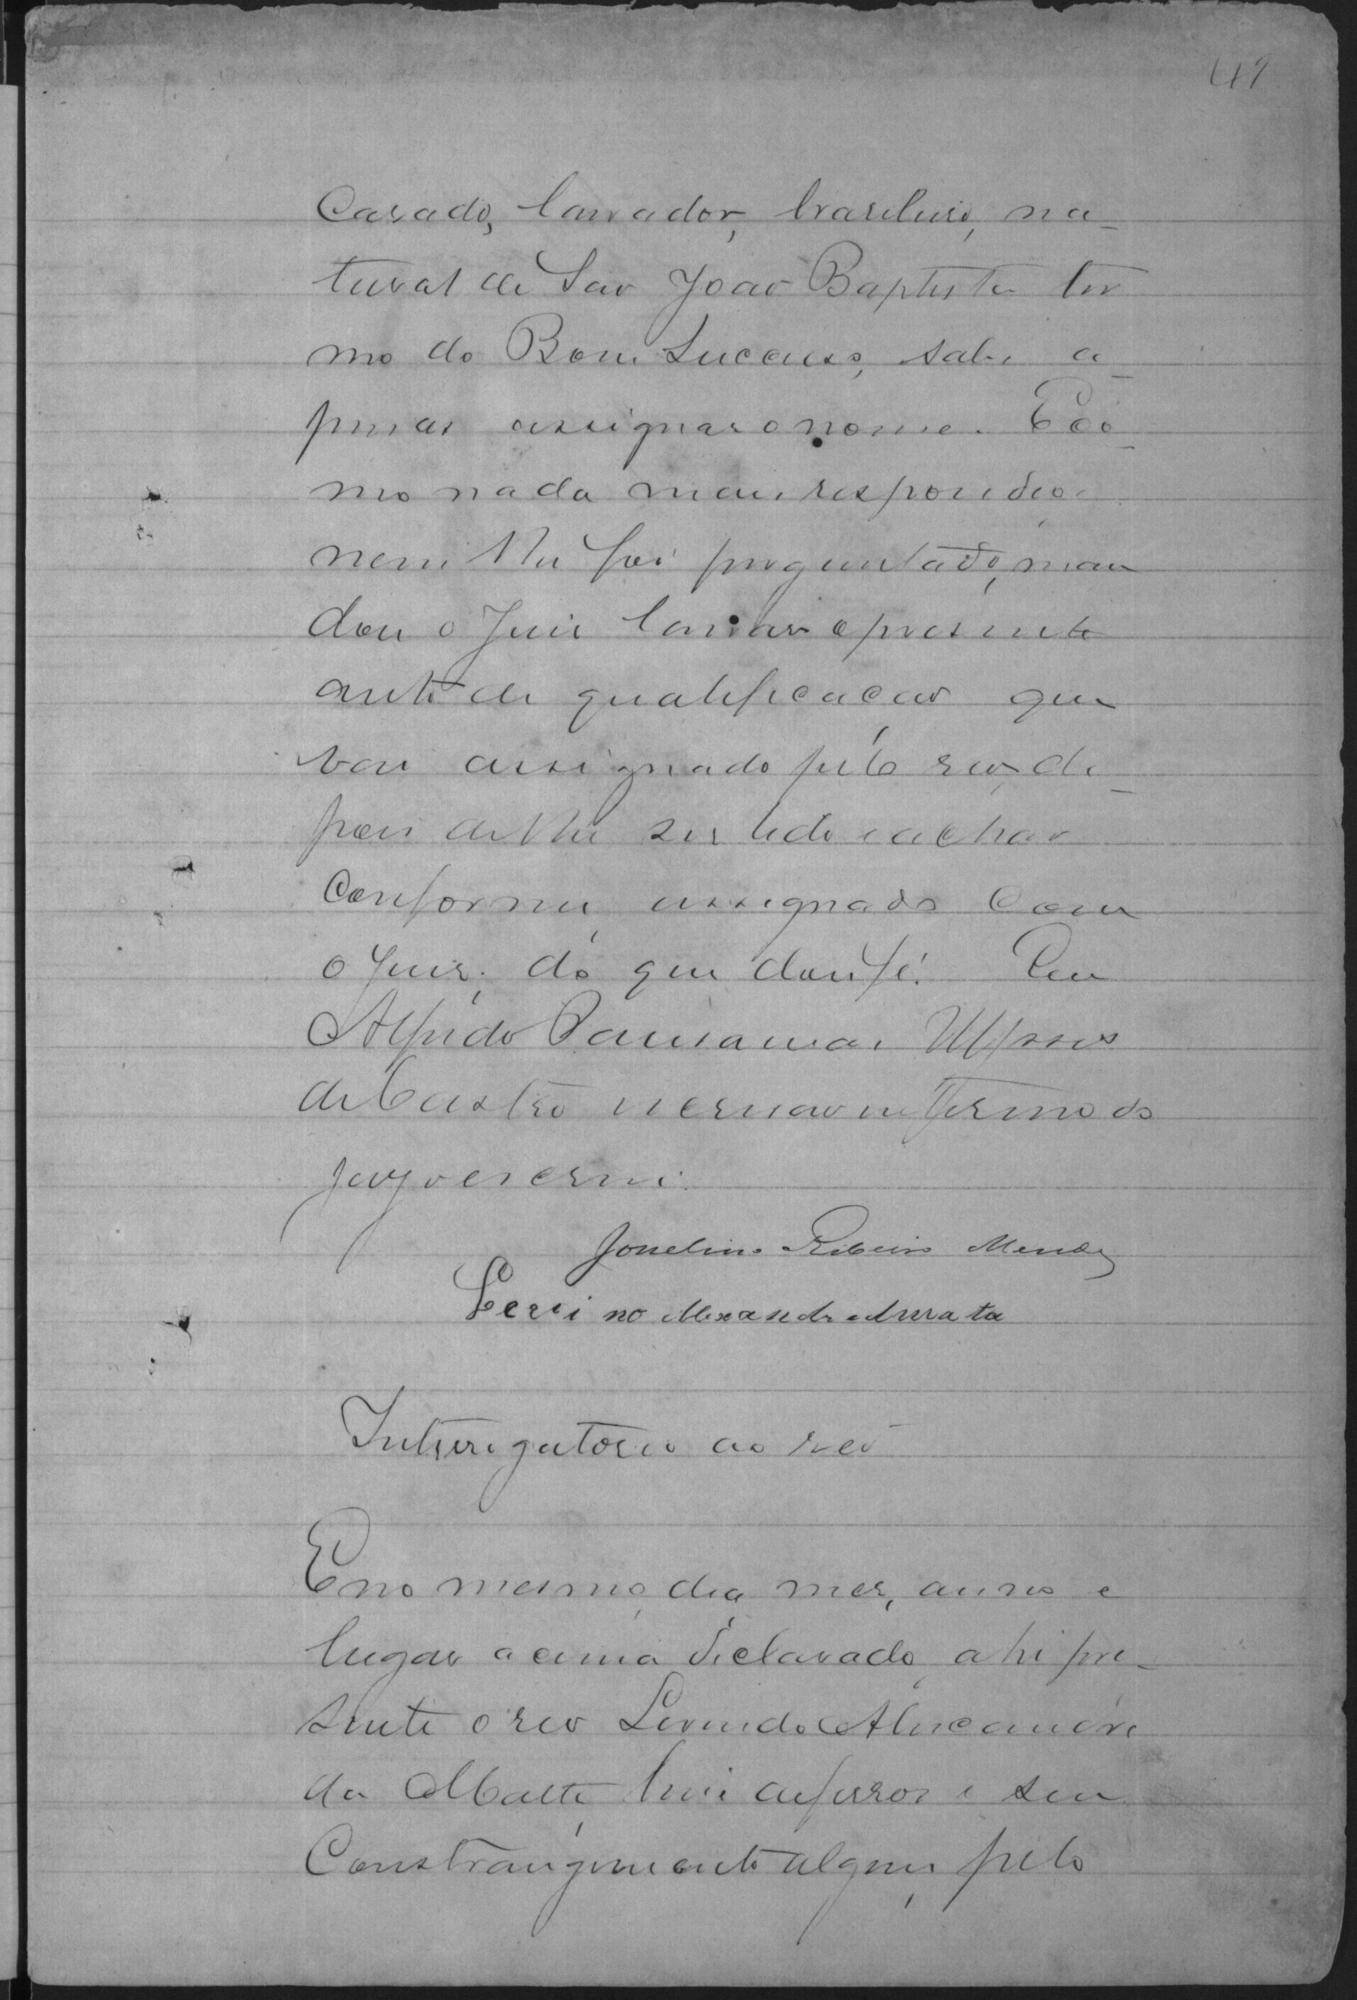 41
Casado, lavrador, brasileiro, na-
tural de Sao Joao Baptista ter
mo do Bom Successo, sabe a-
penas assignar o nome. E co-
mo nada mais respondeo
nem lhe foi perguntado, man
dou o Juiz lavrar o presente
auto de qualificaçao que
vai assignado pelo reo, de-
pois de lhe ser lido e achar
conforme, assignado com
o Juiz, do que dou fé. Eu
Alfredo Pausanias Ulysses
de Castro escrivao interino do
jury o escrevi.
Ribeiro Mendes
no Alexandre da Mata
Interrogatorio ao reo
E no mesmo dia mez, anno e
lugar acima declarado, ahi pre-
sente o reo Levindo Alexandre
da Matta, livre de ferros e sem
constrangimento algum, pelo